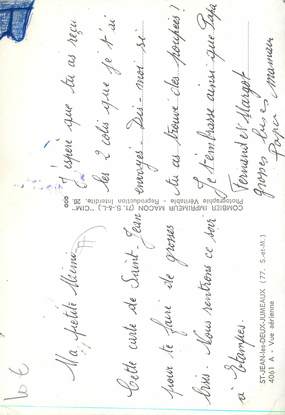 Ma petite Mimi
Cette carte de Saint-Jean
pour te faire de grosses
bises. Nous rentrons ce soir
à Etampes.
J'espère que tu as reçu
les 2 colis que je t'ai
envoyés. Dis-moi si
tu as trouvé des poupées?
Je t'embrasse ainsi que Papa
Fernand et Margot
grosses bises
Papi maman
COMBIER IMPRIMEUR MACON (71. S.-&-L.) - "CIM"
Photographie Véritable - Reproduction interdite.
ST-JEAN-les-DEUX-JUMEAUX (77. S.-et-M.)
4061 A - Vue aérienne